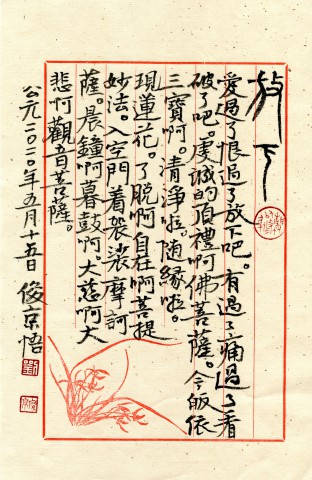 放下
愛過了恨過了放下吧。有過了痛過了看
破了吧。虔誠的頂禮啊佛菩薩。今皈依
三寶啊。清淨啦。随緣啦。
現蓮花。了脱啊自在啊菩提
妙法。入空門着袈裟摩訶
薩。晨鐘啊暮鼓啊大慈啊大
悲啊觀音菩薩。
公元二〇二〇年五月十五日 俊京悟